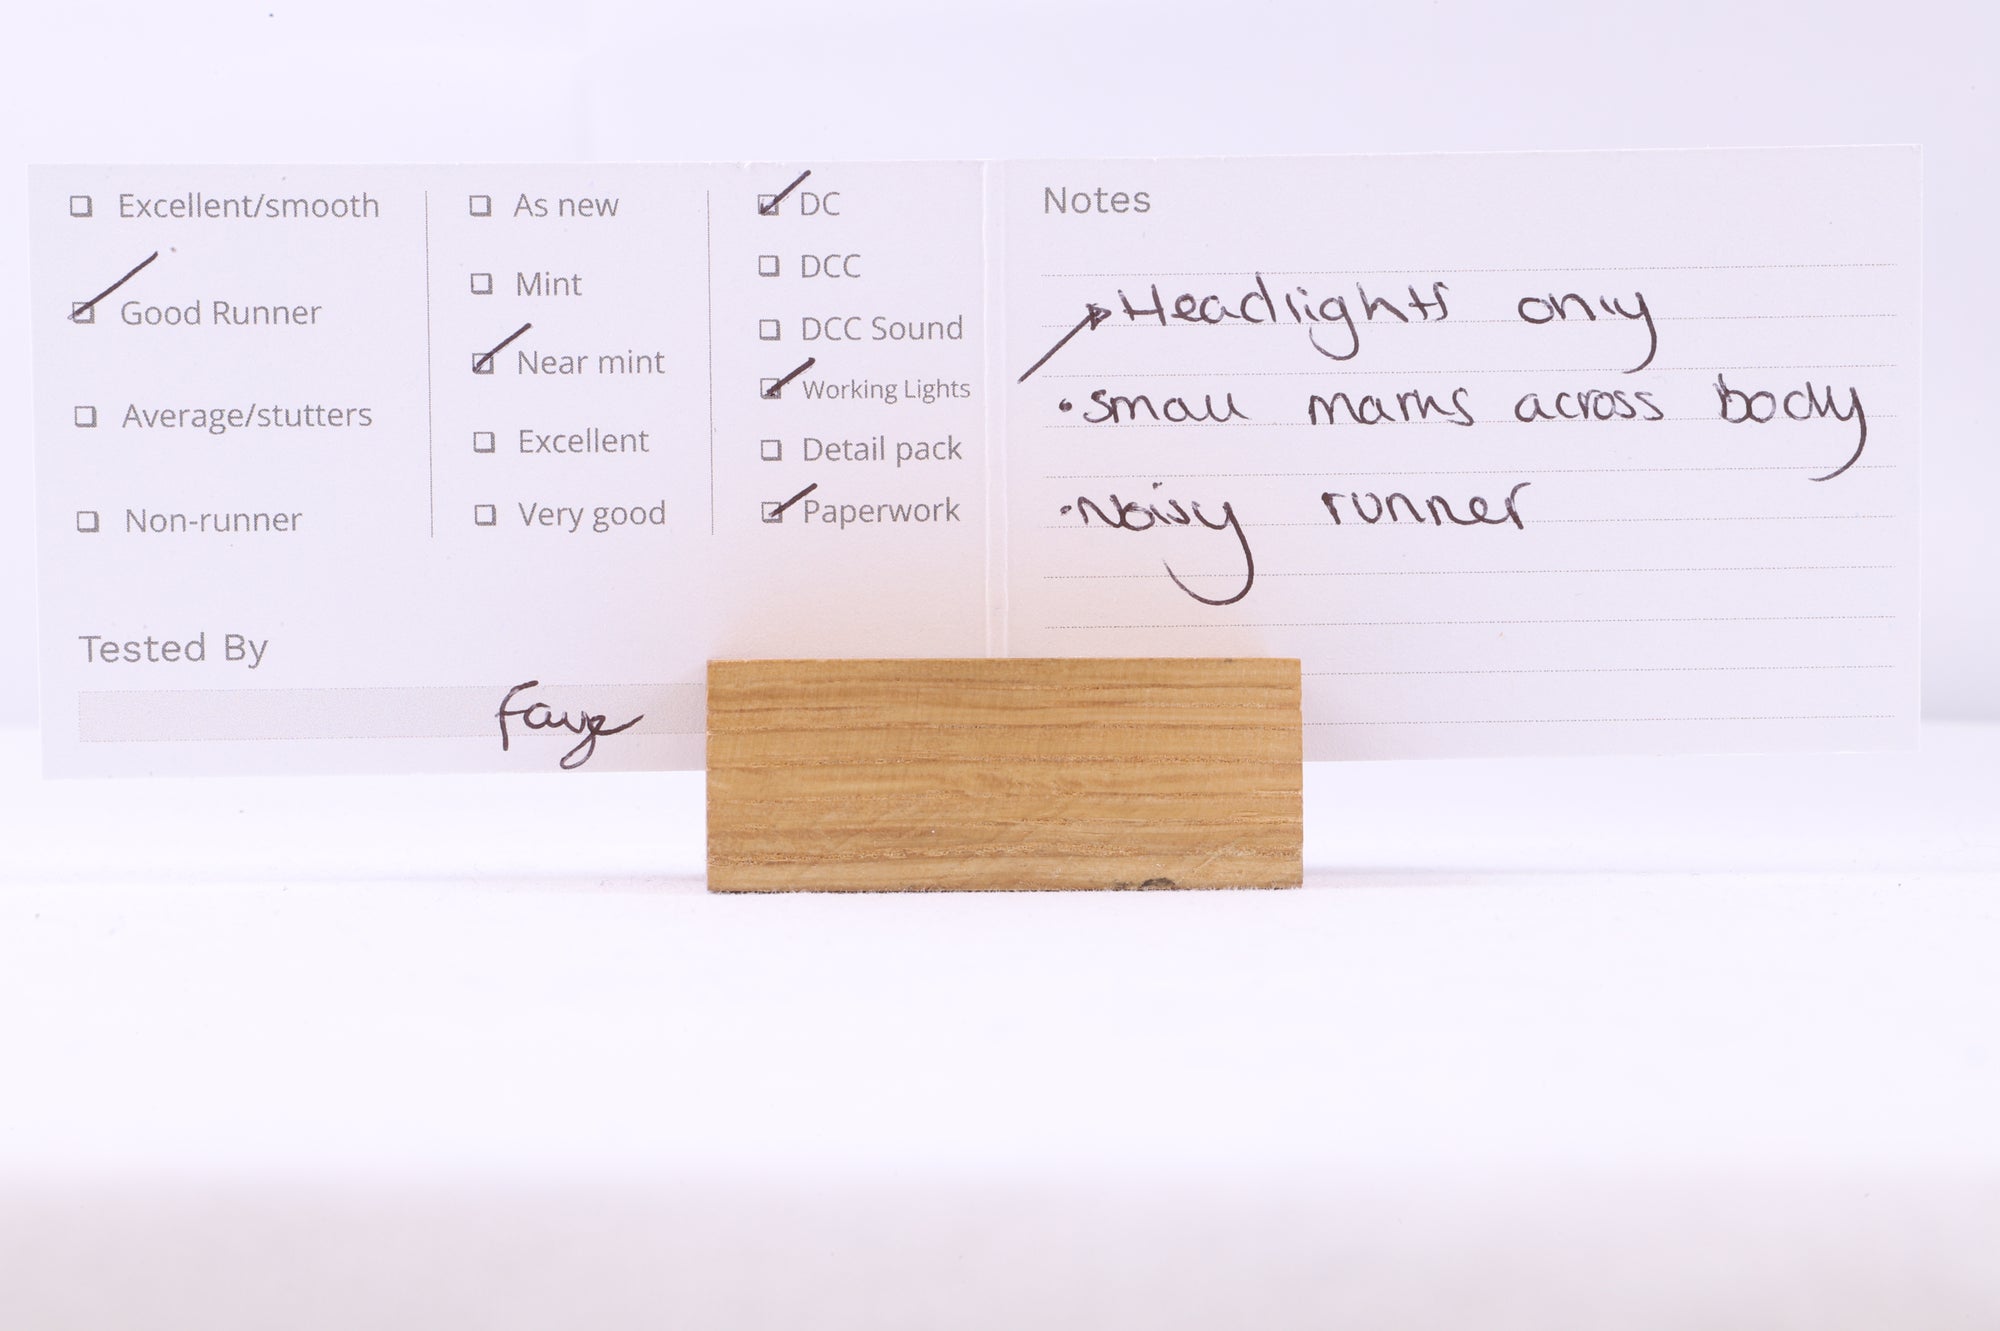 Excellent/smooth
Good Runner
Average/stutters
Non-runner
As new
Mint
Near mint
Excellent
Very good
DC
DCC
DCC Sound
Working Lights
Detail pack
Paperwork
Tested By
Faye
Notes
Headlights only
• small marks across body
• Noisy runner